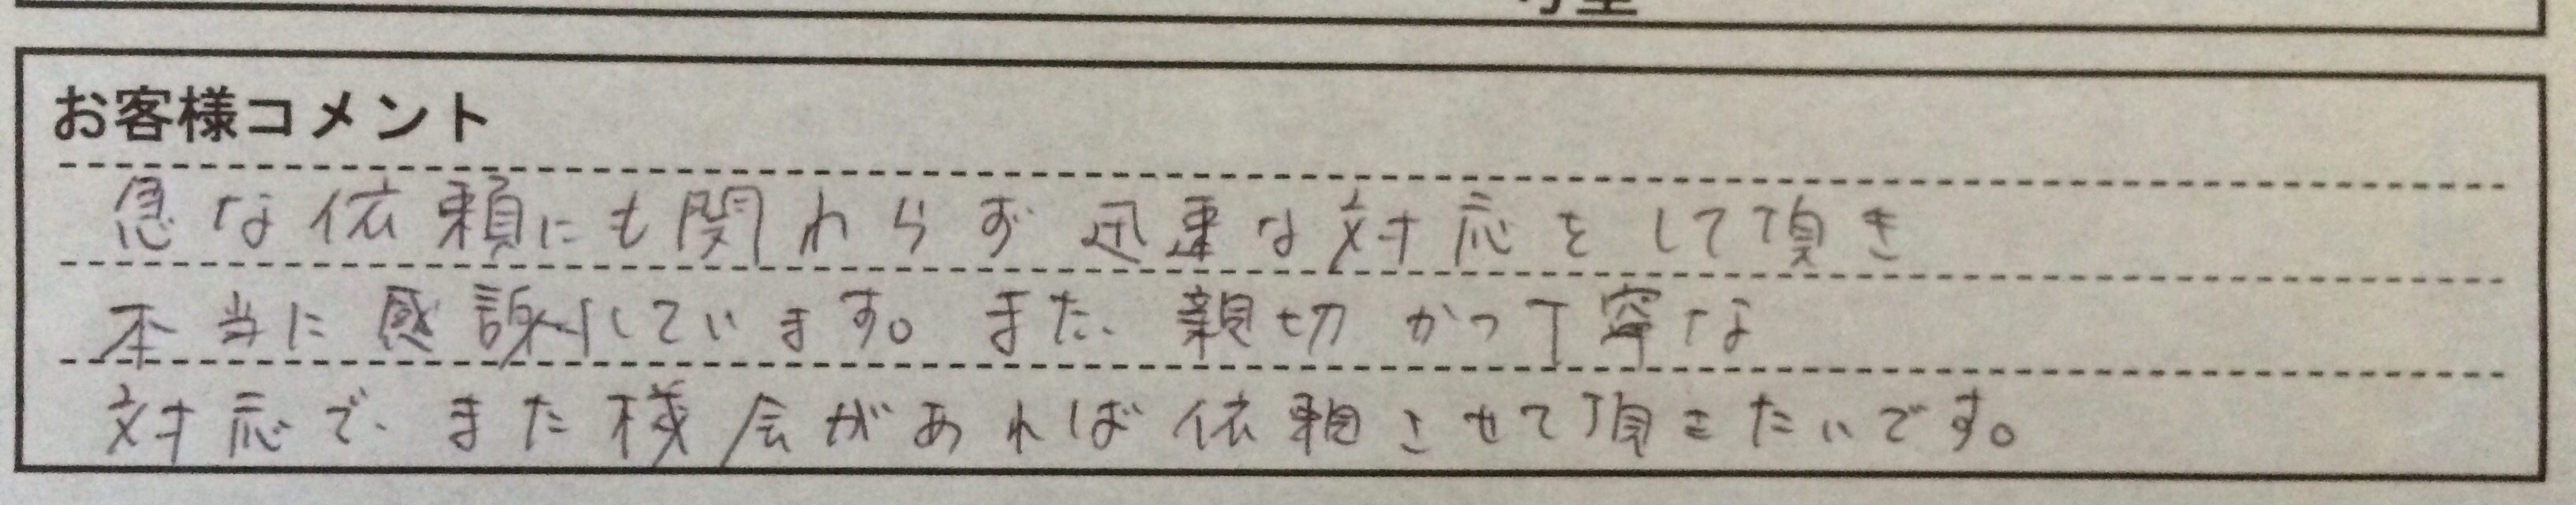 お客様コメント
急な依頼にも関わらず迅速な対応をして頂き
本当に感謝しています。また、親切かつ丁寧な
対応で、また機会があれば依頼させて頂きたいです。